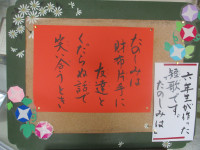 たのしみは
財布片手に
友達と
くだらぬ話で
笑い合うとき
六年生が作った
短歌です。
たのしみは